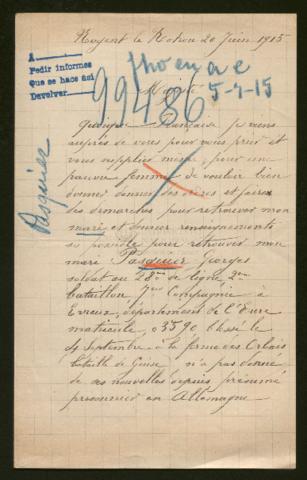 Nogent le Rotrou 20 Juin 1915
A
Pedir informes
Que se hace así
Devolver
99486
5-7-15
Pasquier
Quoique Française je viens
auprès de vous pour vous prier et
vous supplier mise, pour une
pauvre femme de vouloir bien
donner des ordres et faire
des démarches pour retrouver mon
mari et donner renseignements
si possible pour retrouver mon
mari Pasquier Georges
soldat au 28me de ligne 2me
bataillon 7me Compagnie à
Evreux, département de l'Eure
matricule, 03590 blessé le
4 Septembre à la ferme des Orbais
bataille de Guise n'a pas donné
de ses nouvelles depuis, présumé
prisonnier en Allemagne